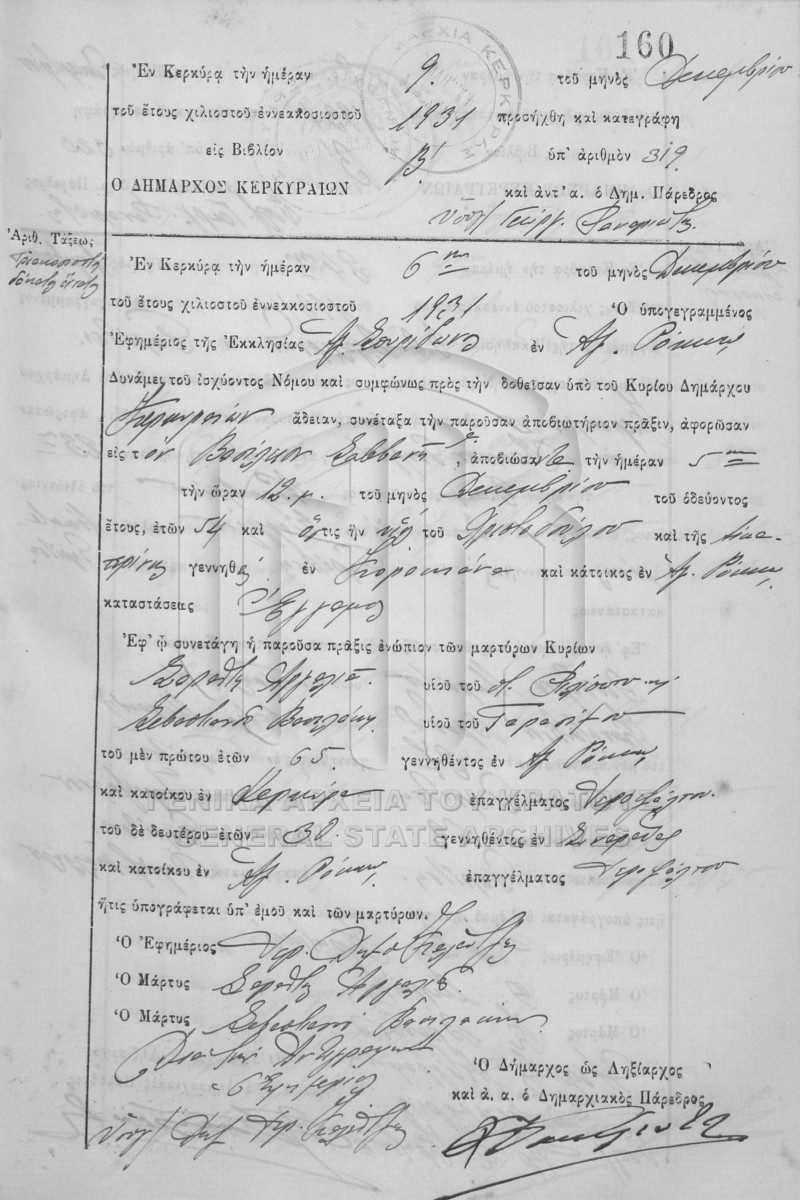 160
Ἐν Κερκύρᾳ τὴν ἡμέραν 9. τοῦ μηνὸς Δεκεμβρίου
τοῦ ἔτους χιλιοστοῦ ἐννεακοσιοστοῦ 1931 προσήχθη καὶ κατεγράφη
εἰς Βιβλίον Β' ὑπ' ἀριθμὸν 319
Ο ΔΗΜΑΡΧΟΣ ΚΕΡΚΥΡΑΙΩΝ καὶ ἀντ' α. ὁ Δημ. Πάρεδρος
Γεώργ.
Ἀριθ. Τάξεως
Ἐν Κερκύρᾳ τὴν ἡμέραν 6ην τοῦ μηνὸς Δεκεμβρίου
τοῦ ἔτους χιλιοστοῦ ἐννεακοσιοστοῦ 1931 Ὁ ὑπογεγραμμένος
Ἐφημέριος τῆς Ἐκκλησίας Ἁγ. Σπυρίδωνος ἐν Ἁγ. Ρόκκῳ
Δυνάμει τοῦ ἰσχύοντος Νόμου καὶ συμφώνως πρὸς τὴν δοθεῖσαν ὑπὸ τοῦ Κυρίου Δημάρχου
Κερκυραίων ἄδειαν, συνέταξα τὴν παροῦσαν ἀποβιωτήριον πρᾶξιν, ἀφορῶσαν
εἰς τ ὸν Βασίλειον ἀποβιώσαντα τὴν ἡμέραν 5ην
τὴν ὥραν 12 μ. τοῦ μηνὸς Δεκεμβρίου τοῦ ὁδεύοντος
ἔτους, ἐτῶν 54 καὶ ὅστις ἦν υἱὸς τοῦ Χριστοδούλου καὶ τῆς Αἰκα-
τερίνης γεννηθεὶς ἐν Κορακιάνα καὶ κάτοικος ἐν Ἁγ. Ρόκκῳ
καταστάσεως Ἔγγαμος
Ἐφ' ᾧ συνετάγη ἡ παροῦσα πρᾶξις ἐνώπιον τῶν μαρτύρων Κυρίων
υἱοῦ τοῦ
υἱοῦ τοῦ Γερασίμου
τοῦ μὲν πρώτου ἐτῶν 65 γεννηθέντος ἐν Ἁγ. Ρόκκῳ
καὶ κατοίκου ἐν Κερκύρᾳ ἐπαγγέλματος Ἱεροψάλτου
ΓΕΝΙΚΑ ΑΡΧΕΙΑ ΤΟΥ ΚΡΑΤΟΥΣ
τοῦ δὲ δευτέρου ἐτῶν 38 γεννηθέντος ἐν Σιναράδες
GENERAL STATE ARCHIVES
καὶ κατοίκου ἐν Ἁγ. Ρόκκῳ ἐπαγγέλματος Ἱεροψάλτου
ἥτις ὑπογράφεται ὑπ' ἐμοῦ καὶ τῶν μαρτύρων.
Ὁ Ἐφημέριος Ἱερ.
Ὁ Μάρτυς
Ὁ Μάρτυς
Ὁ Δήμαρχος ὡς Ληξίαρχος
ὁ Ἐφημέριος
καὶ ἀ. α. ὁ Δημαρχιακὸς Πάρεδρος